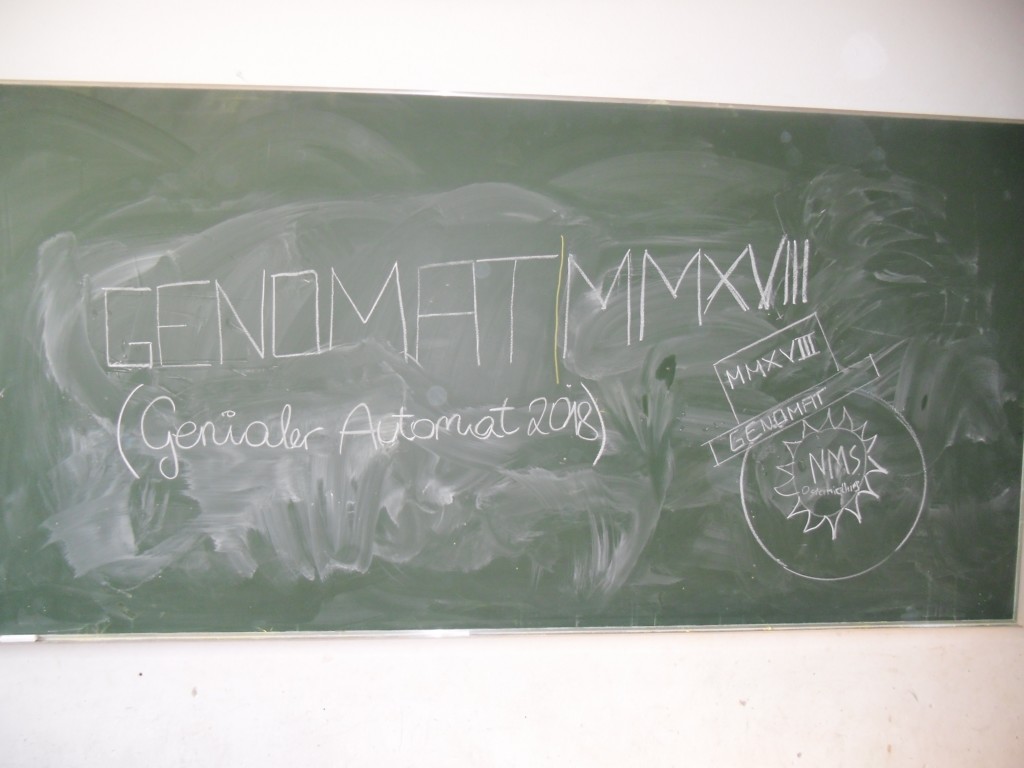 GENOMAT|MMXVIII
(Genialer Automat 2018)
MMXVIII
GENOMAT
NMS